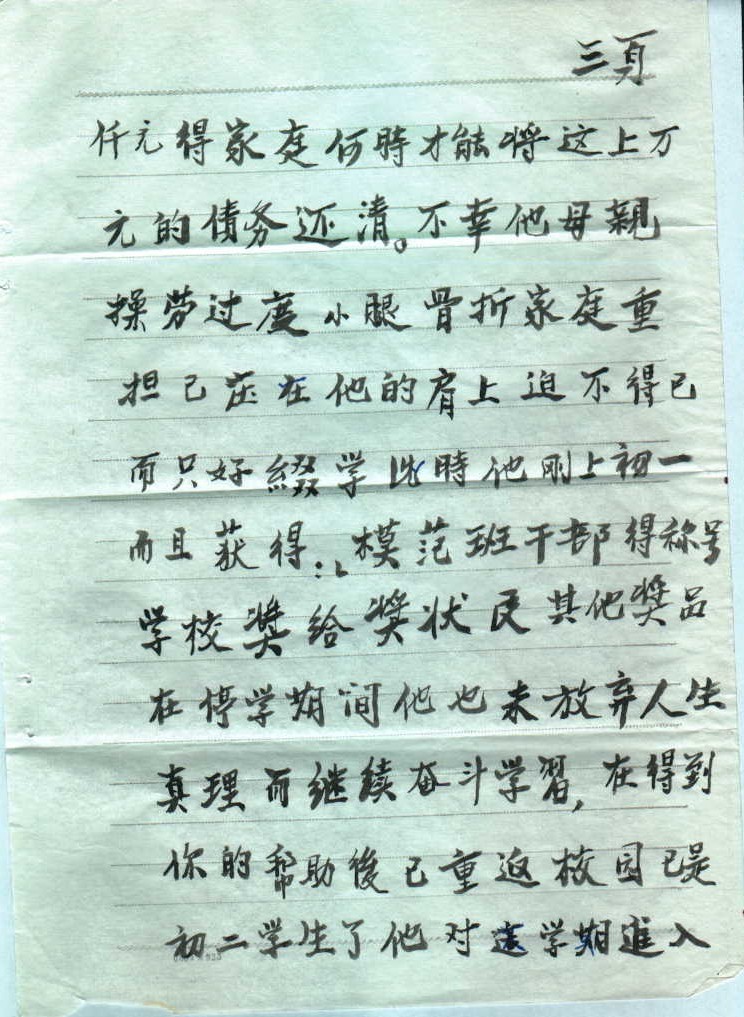 三頁
仟元得家庭何時才能将这上万
元的債务还清。不幸他母親
操劳过度小腿骨折家庭重
担已压在他的肩上迫不得已
而只好綴学此時他刚上初一
而且获得:模范班干部得称号
学校奬给奬状及其他奬品
在停学期间他也未放弃人生
真理而继續奋斗学習,在得到
你的帮助後已重返校园已是
初二学生了他对這学期進入